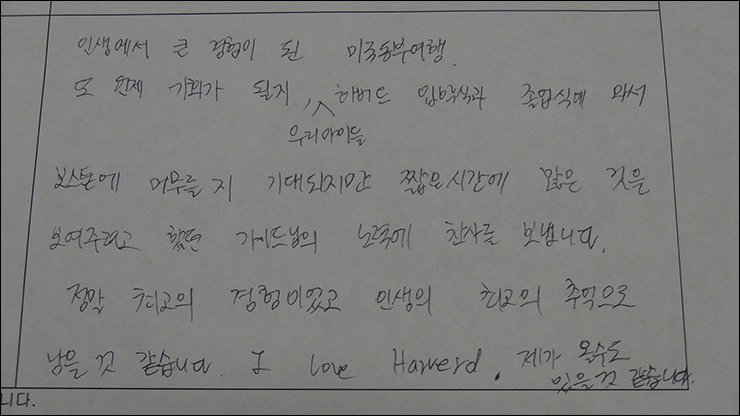 인생에서 큰 경험이 된 미국동부여행.
또 언제 기회가 될지 하버드 입학식과 졸업식에 와서
우리아이들
보스톤에 머무를 지 기대되지만 짧은시간에 많은 것을
보여주려고 했던 가이드님의 노력에 찬사를 보냅니다.
정말 최고의 경험이었고 인생의 최고의 추억으로
남을 것 같습니다. I love Harverd. 제가 올수도
있을것 같습니다.
니다.